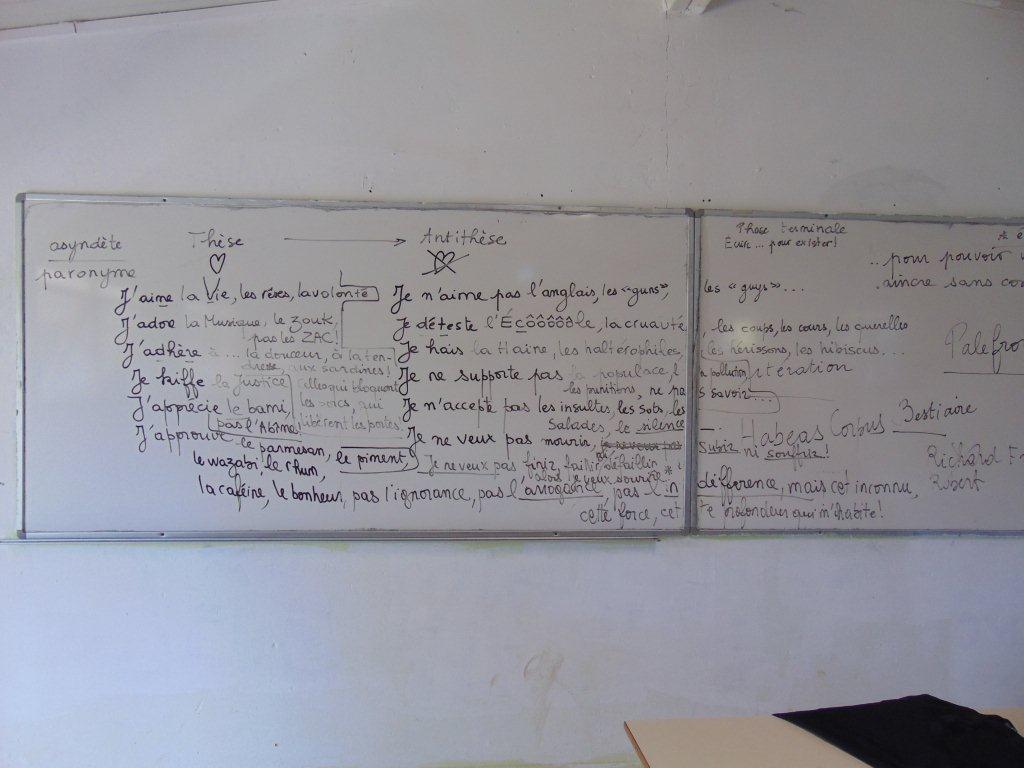 asyndète
paronyme
Thèse
Antithèse
J'aime la Vie, les rêves, la volonté
J'adore la Musique, le zouk,
pas les ZAC!
J'adhère à ... la douceur, à la ten-
dresse, aux sardines!
Je kiffe la Justice
celle qui bloquent
les voies, qui
libèrent les portes.
J'apprécie le bami,
pas l'Abîme!
J'approuve le parmesan,
le wazabi, le rhum, le piment,
la caféine, le bonheur, pas l'ignorance, pas l'arrogance, pas l'in
différence, mais cet inconnu,
cette force, cet
te profondeur qui m'habite!
Je n'aime pas l'anglais, les «guns»,
les «guys»...
Je déteste l'Écôôôôôle, la cruauté
, les coups, les cours, les querelles
Je hais la Haine, les haltérophiles,
les hérissons, les hibiscus...
Je ne supporte pas la populace, l
a pollution,
les punitions, ne pa
s savoir...
Je n'accepte pas les insultes, les sots, les
salades, le silence
Je ne veux pas mourir,
Je ne veux pas finir, faillir, défaillir
subir ni souffrir!
Phase terminale
Écrire... pour exister!
..pour pouvoir
aincre sans
itération
Palefro
Habeas Corpus
Bestiaire
Richard
Robert